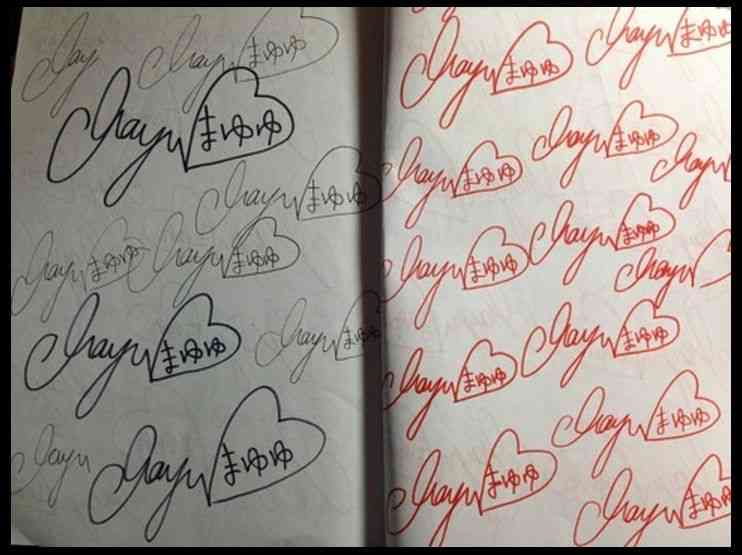 May
Mayu まゆゆ
Mayu まゆゆ
Mayu まゆゆ
Mayu まゆゆ
Mayu まゆゆ
Mayu まゆゆ
Mayu まゆゆ
Mayu
Mayu まゆゆ
Mayu まゆゆ
Mayu まゆゆ
Mayu まゆゆ
Mayu まゆゆ
Mayu
Mayu まゆゆ
Mayu まゆゆ
Mayu
Mayu まゆゆ
Mayu まゆゆ
Mayu まゆゆ
Mayu まゆゆ
Mayu まゆゆ